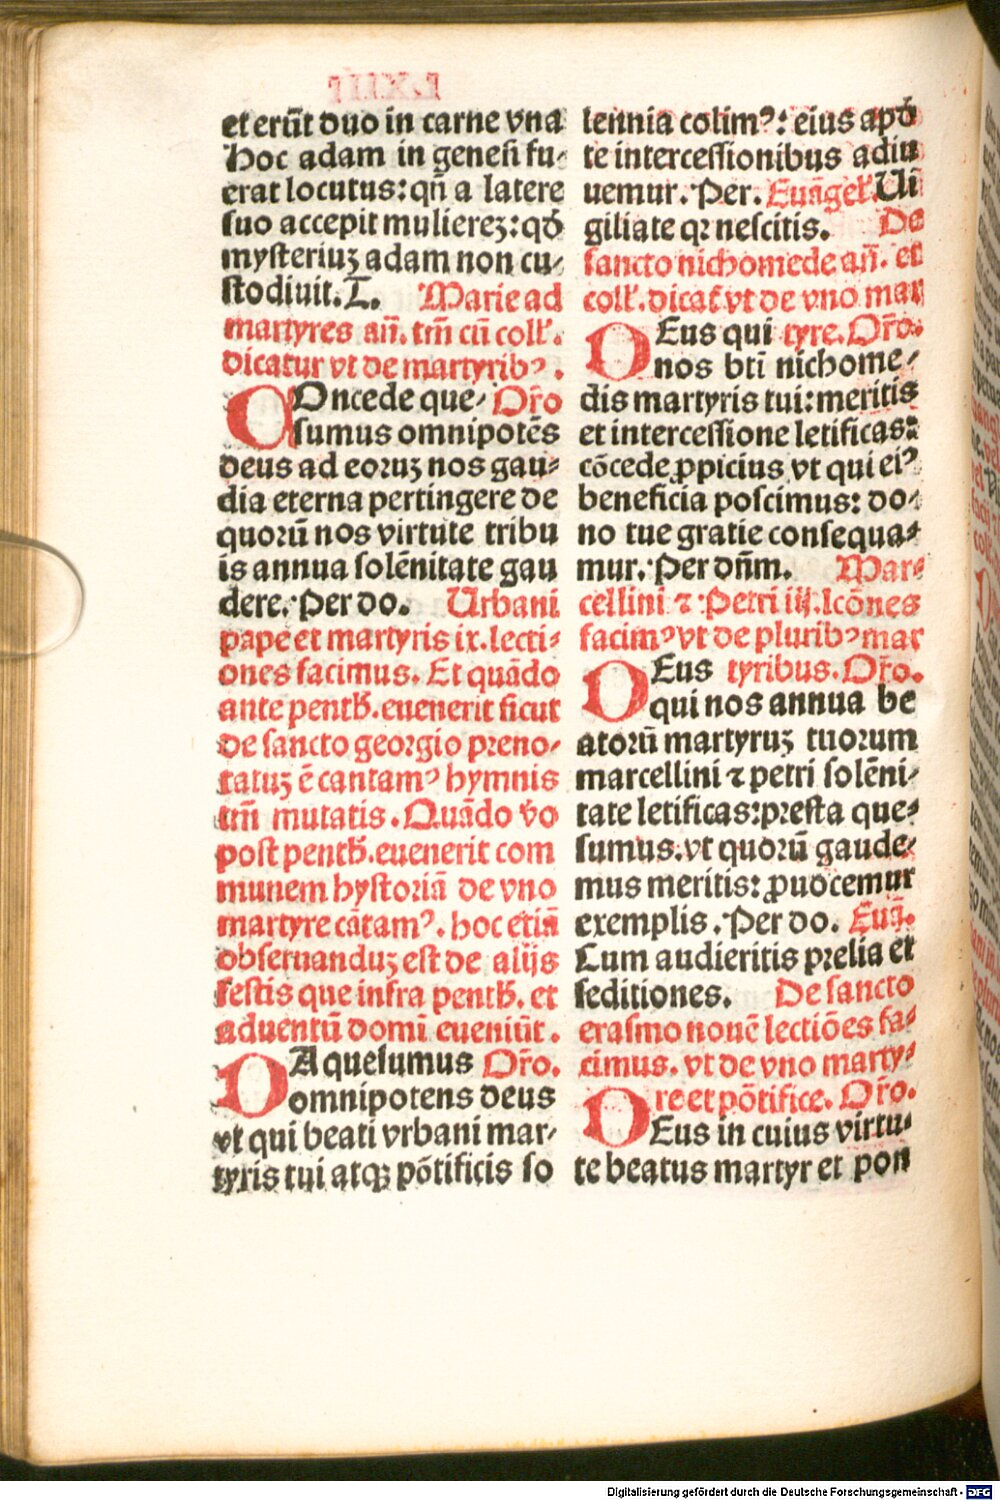 et erūt duo in carne vna
Hoc adam in genesi fu⸗
erat locutus: qñ a latere
suo accepit mulierez: qđ
mysteriuz adam non cu⸗
stodiuit. T. Marie ad
martyres añ. tm̄ cū coll'.
dicatur vt de martyribꝰ.
COncede que⸗ Or̄o
sumus omnipotēs
deus ad eoruz nos gau⸗
dia eterna pertingere de
quorū nos virtute tribu
is annua solēnitate gau
dere. Per do. Urbani
pape et martyris ix. lecti⸗
ones facimus. Et quādo
ante penth. euenerit sicut
de sancto georgio preno⸗
tatuz ē cantamꝰ hymnis
tm̄ mutatis. Quādo v̄o
post penth. euenerit com
munem hystoriā de vno
martyre cātamꝰ. hoc etiā
obseruanduz est de alijs
festis que infra penth. et
aduentū domī eueniūt.
DA quesumus Or̄o.
omnipotens deus
vt qui beati vrbani mar⸗
tyris tui atqꝫ pōtificis so
lennia colimꝰ: eius apđ
te intercessionibus adiu
uemur. Per. Euāgel'. Ui
giliate qꝛ nescitis. De
sancto nichomede añ. et
coll'. dicat̄ vt de vno mar
DEus qui tyre. Or̄o.
nos bt̄i nichome⸗
dis martyris tui: meritis
et intercessione letificas:
cōcede ꝓpicius vt qui eiꝰ
beneficia poscimus: do⸗
no tue gratie consequa⸗
mur. Per dn̄m. Mar⸗
cellini ⁊ Petri iij. lcōnes
facimꝰ vt de pluribꝰ mar
DEus tyribus. Or̄o.
qui nos annua be
atorū martyruz tuorum
marcellini ⁊ petri solēni⸗
tate letificas: presta que⸗
sumus. vt quorū gaude⸗
mus meritis: ꝓuocemur
exemplis. Per do. Euā.
Cum audieritis prelia et
seditiones. De sancto
erasmo nouē lectiōes fa⸗
cimus. vt de vno marty⸗
re et pōtifice. Or̄o.
DEus in cuius virtu⸗
te beatus martyr et pon
Digitalisierung gefördert durch die Deutsche Forschungsgemeinschaft - DFG